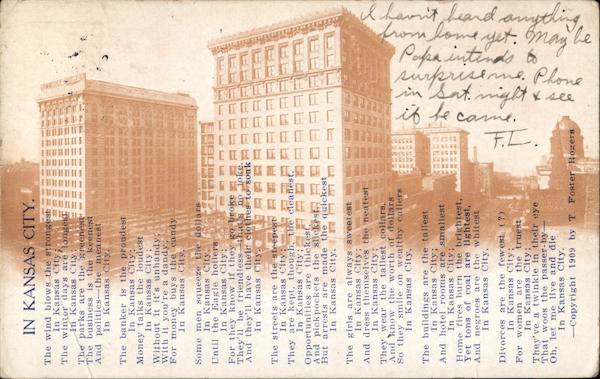 I havn't heard anything
from home yet. May be
Papa intends to
surprise me. Phone
in Sat. night & see
if he came.
F.L.
IN KANSAS CITY.
The wind blows the strongest
In Kansas City,
The winter days are longest
In Kansas City,
The parks are the greenest
The business is the keenest
And business men meanest
In Kansas City.
The banker is the proudest
In Kansas City,
Money talks the loudest
In Kansas City,
Without it you're a
With it you're a dandy,
For money buys the candy
In Kansas City.
Some men squeeze the dollars
In Kansas City,
Until the Eagle hollers
In Kansas City,
For they know if they go broke
They'll find friendless—that's no joke,
And they'll have their clothes to soak
In Kansas City.
The streets are the steepest
In Kansas City,
They are kept, though, the cleanest,
In Kansas City,
Opportunities are thickest,
And pickpockets the slickest,
But arrests are made the quickest
In Kansas City.
The girls are always sweetest
In Kansas City,
And dress themselves the neatest
In Kansas City,
They wear the tallest collars,
And know the worth of dollars
So they smile on wealthy callers
In Kansas City.
The buildings are the tallest
In Kansas City,
And hotel rooms are smallest
In Kansas City,
Home fires burn the brightest,
Yet tons of coal are lightest,
And negroes are the whitest
In Kansas City.
Divorces are the fewest (?)
In Kansas City,
For women are the truest
In Kansas City,
They've a twinkle in their eye
That woos the passer-by—
Oh, let me live and die
In Kansas City.
—Copyright 1909 by T. Foster Rogers